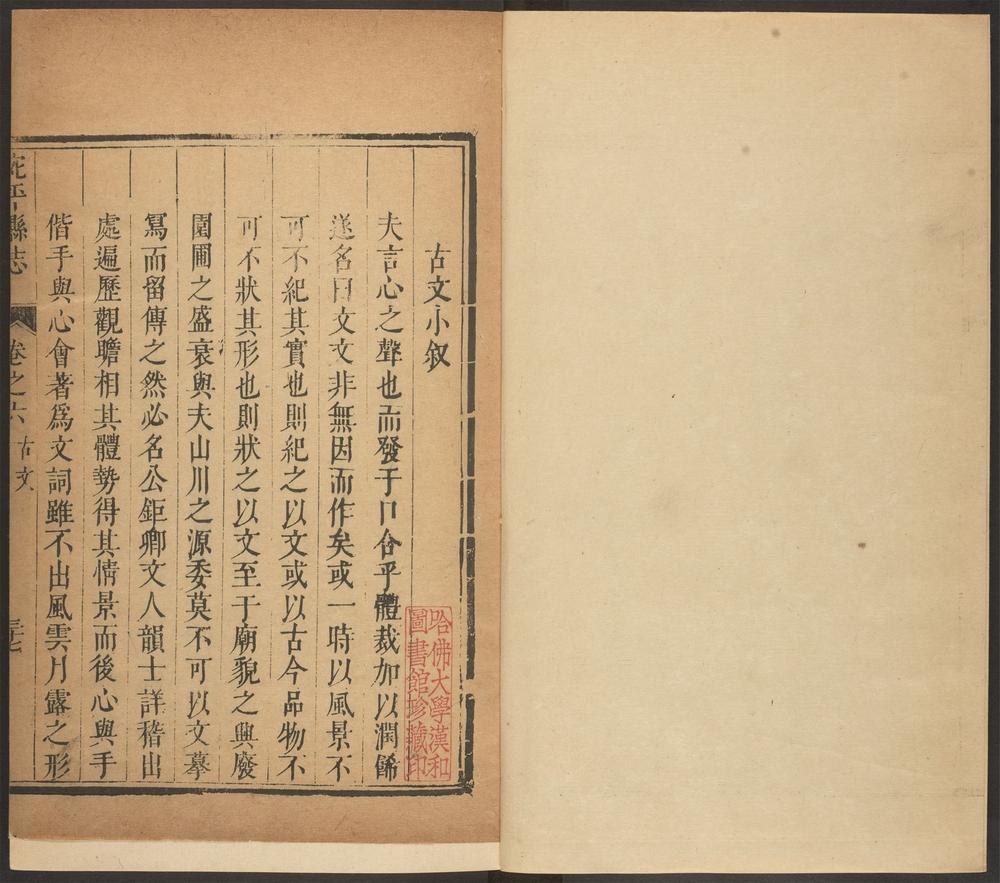 古文小叙
夫言心之聲也而發于口合乎體裁加以潤餙
遂名曰文文非無因而作矣或一時以風景不
可不紀其實也則紀之以文或以古今品物不
可不狀其形也則狀之以文至于廟貌之興廢
園圃之盛衰與夫山川之源委莫不可以文摹
寫而留傳之然必名公鉅卿文人韻士詳稽出
處遍歷觀瞻相其體勢得其情景而後心與手
偕手與心會著爲文詞雖不出風雲月露之形
平縣志 卷之六 古文
哈佛大學漢和
圖書館珍藏印